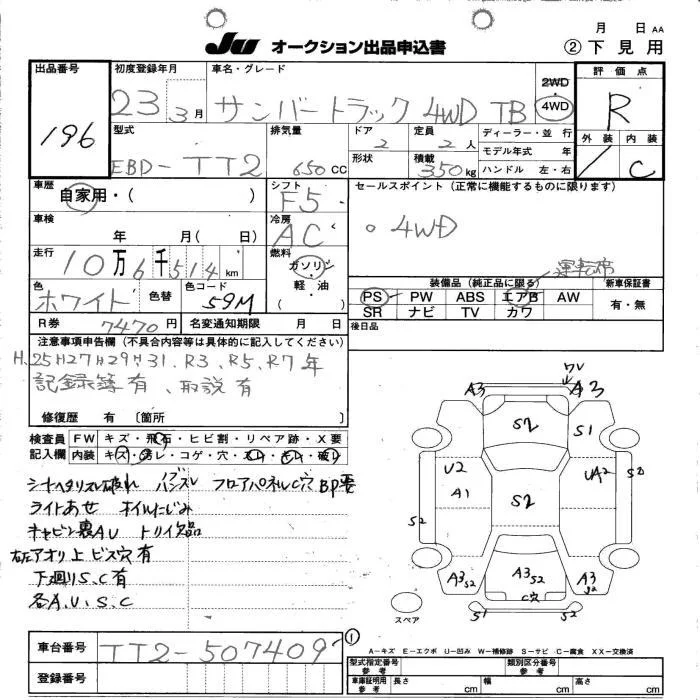 月 日 AA
JU オークション出品申込書
② 下見用
出品番号
196
初度登録年月
23 3月
車名・グレード
サンバートラック 4WD TB
2WD
4WD
評価点
R
外装 内装
C
型式
EBD-TT2
排気量
650CC
ドア
2
定員
2人
ディーラー・並行
モデル年式 年
ハンドル 左・右
形状
積載
350kg
車歴
自家用・( )
シフト
F5
セールスポイント(正常に機能するものに限ります)
。4WD
車検
年 月( 日)
冷房
AC
走行
10万6千514km
燃料
ガソリン
軽・油
( )
色
ホワイト
色替
色コード
59M
運転席
装備品(純正品に限る)
新車保証書
PS PW ABS エアB AW
SR ナビ TV カワ
有・無
R券
7470円
名変通知期限 月 日
後日品
注意事項申告欄(不具合内容等は具体的に記入してください)
H.25 27 29 31. R3、R5、R7年
記録簿有、取説有
修復歴 有〔箇所 〕
検査員
記入欄
FW キズ・飛石・ヒビ割・リペア跡・X要
内装 キズ・汚レ・コゲ・穴・
シートヘタリスレ破れ フロアパネルC穴 BP要
ライトあせ オイルにじみ
キャビン裏AU トリイ欠品
左右アオリ上 ビス穴有
下廻りS.C有
各A.U.S.C
A3 A3
S2 S1
U2 UA2 S2
A1 S2
S2
A3 S2 A3 S2 A3 S2
C穴
S1 S2
スペア
車台番号
TT2-507409
登録番号
①
A-キズ E-エクボ U-凹み W-補修跡 S-サビ C-腐食 XX-交換済
型式指定番号
参考
類別区分番号
参考
車庫証明用
参考
長さ cm 幅 cm 高さ cm